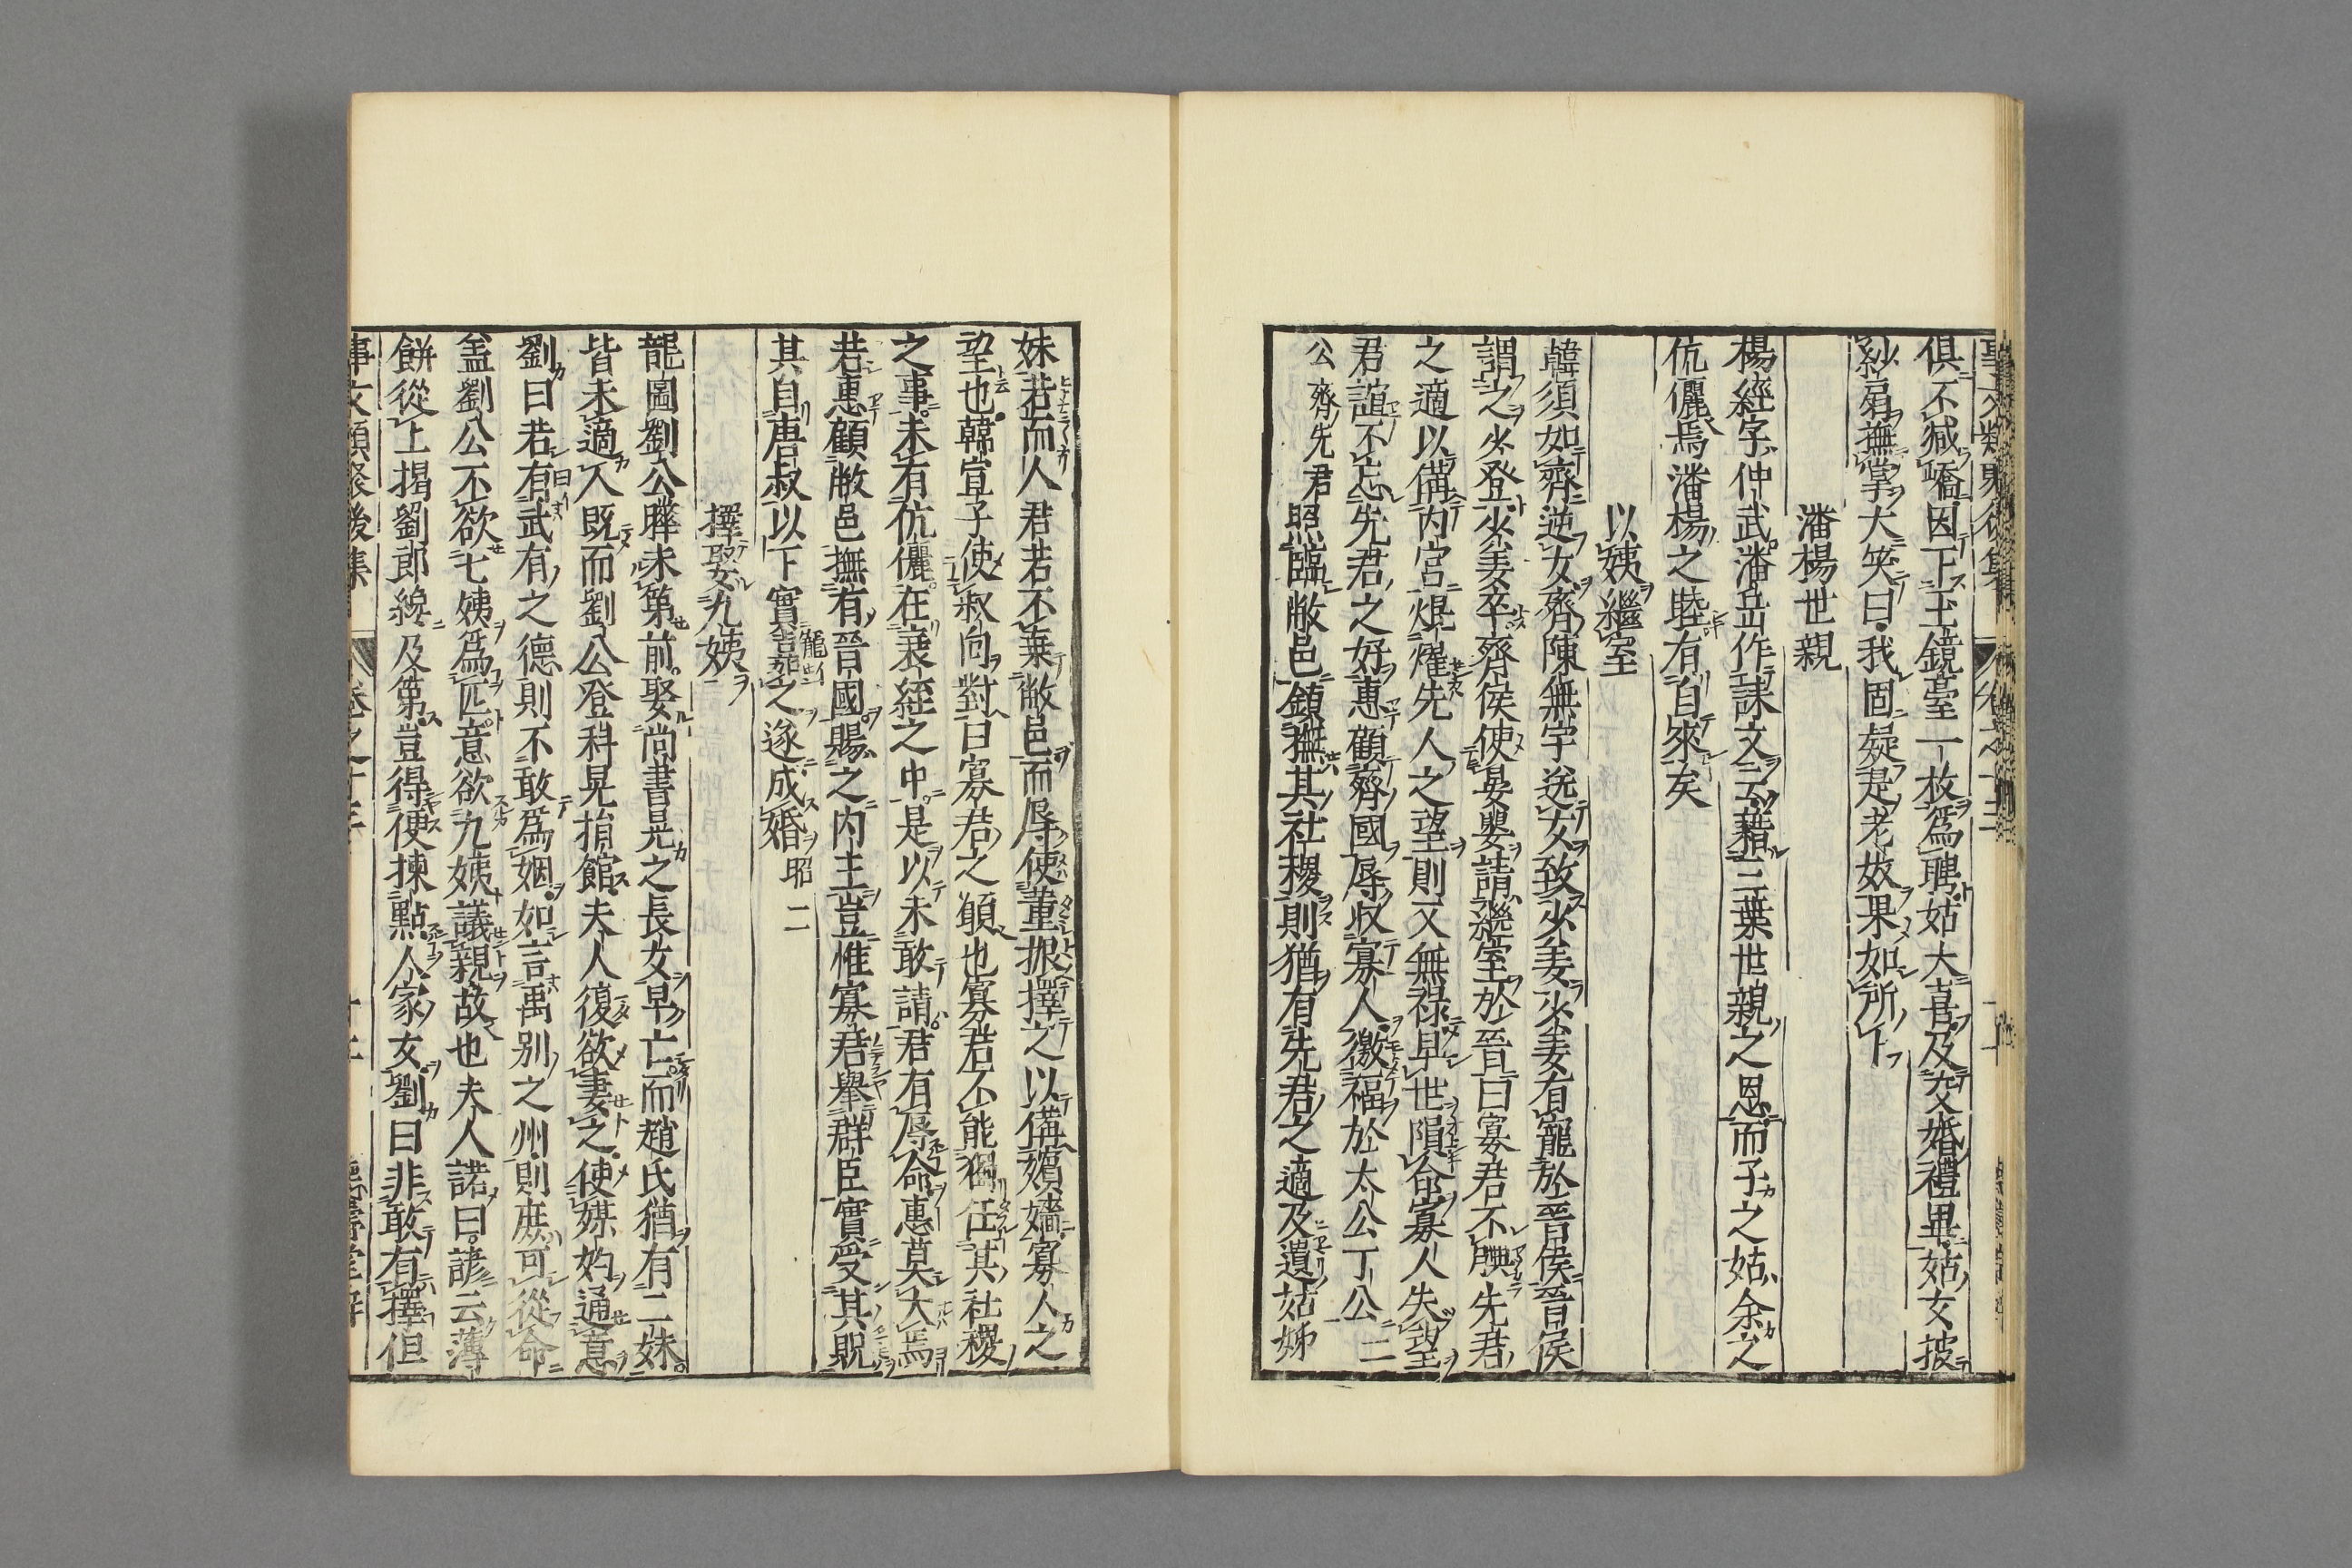 俱不减嶠因下玉鏡䑓一枚爲聘姑大喜及交婚禮畢姑女披
紗扇撫掌大笑曰我固疑是老奴果如所卜
潘楊世親
楊經字仲武潘岳作誄文云藉三葉世親之恩而子之姑余之
伉儷焉潘楊之睦有自來矣
以姨繼室
韓須如齊逆女齊陳無宇送女致少姜少姜有寵於晉侯晉侯
謂之少登少姜卒齊侯使晏嬰請繼室於晉曰寡君不腆先君
之適以備內宮焜燿先人之望則又無禄早世隕命寡人失望
君誼不忘先君之好惠顧齊國辱收寡人徼福於太公丁公二
公齊先君照臨敝邑鎮撫其社稷則猶有先君之適及遺姑姊
妹若而人君若不棄敝邑而辱使董振擇之以備嬪嬙寡人之
望也韓宣子使叔向對曰寡君之願也寡君不能獨任其社稷
之事未有伉儷在衰絰之中是以未敢請君有辱命惠莫大焉
若惠顧敝邑撫有晉國賜之內主豈惟寡君舉群臣實受其貺
其自唐叔以下實寵嘉之遂成婚昭二
擇娶九姨
龍圖劉公曄未第前娶尚書晃之長女早亡而趙氏猶有二妹
皆未適人既而劉公登科晃捐館夫人復欲妻之使媒妁通意
劉曰若有武有之德則不敢爲姻如言禹別之州則庶可從命
盖劉公不欲七姨爲匹意欲九姨議親故也夫人諾曰諺云薄
餅從上揭劉郎纔及第豈得便揀點人家女劉曰非敢有擇但
事文類聚後集 卷之十三